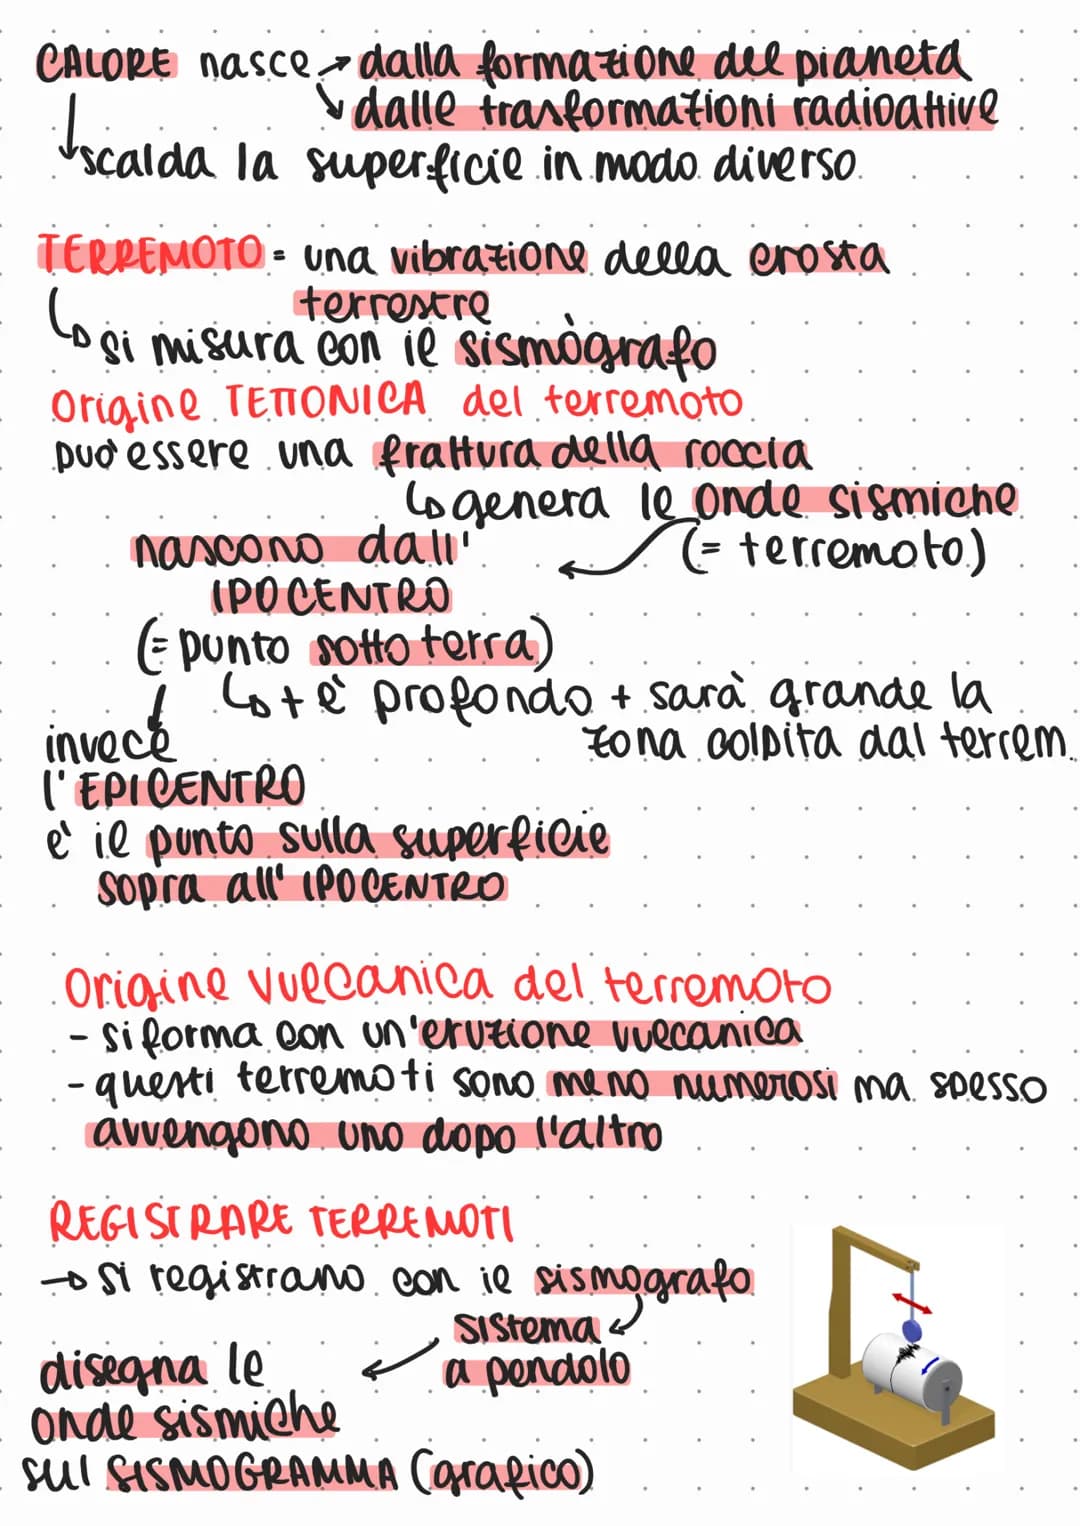 CALORE nasce → dalla formazione del pianeta
↘ dalle trasformazioni radioattive
↳ scalda la superficie in modo diverso
TERREMOTO = una vibrazione della crosta
terrestre
↳ si misura con il sismògrafo
Origine TETTONICA del terremoto
può essere una frattura della roccia
↳ genera le onde sismiche
nascono dall' (= terremoto)
IPOCENTRO
(= punto sotto terra)
↳ + è profondo + sarà grande la
invece zona colpita dal terrem.
l'EPICENTRO
e' il punto sulla superficie
sopra all' IPOCENTRO
Origine vulcanica del terremoto
- si forma con un'eruzione vulcanica
- questi terremoti sono meno numerosi ma spesso
avvengono uno dopo l'altro
REGISTRARE TERREMOTI
→ si registrano con il sismografo
sistema
disegna le a pendolo
onde sismiche
sul SISMOGRAMMA (grafico)